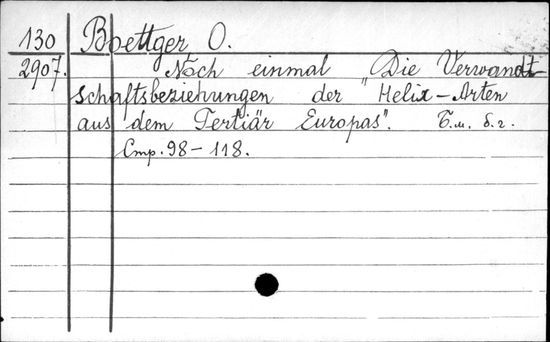 130 Boettger, O.
2907. Noch einmal "Die Verwandt
schaftsbeziehungen der Helix-Arten
aus dem Tertiär Europas". Б. м. б. г.
Стр. 98-118.